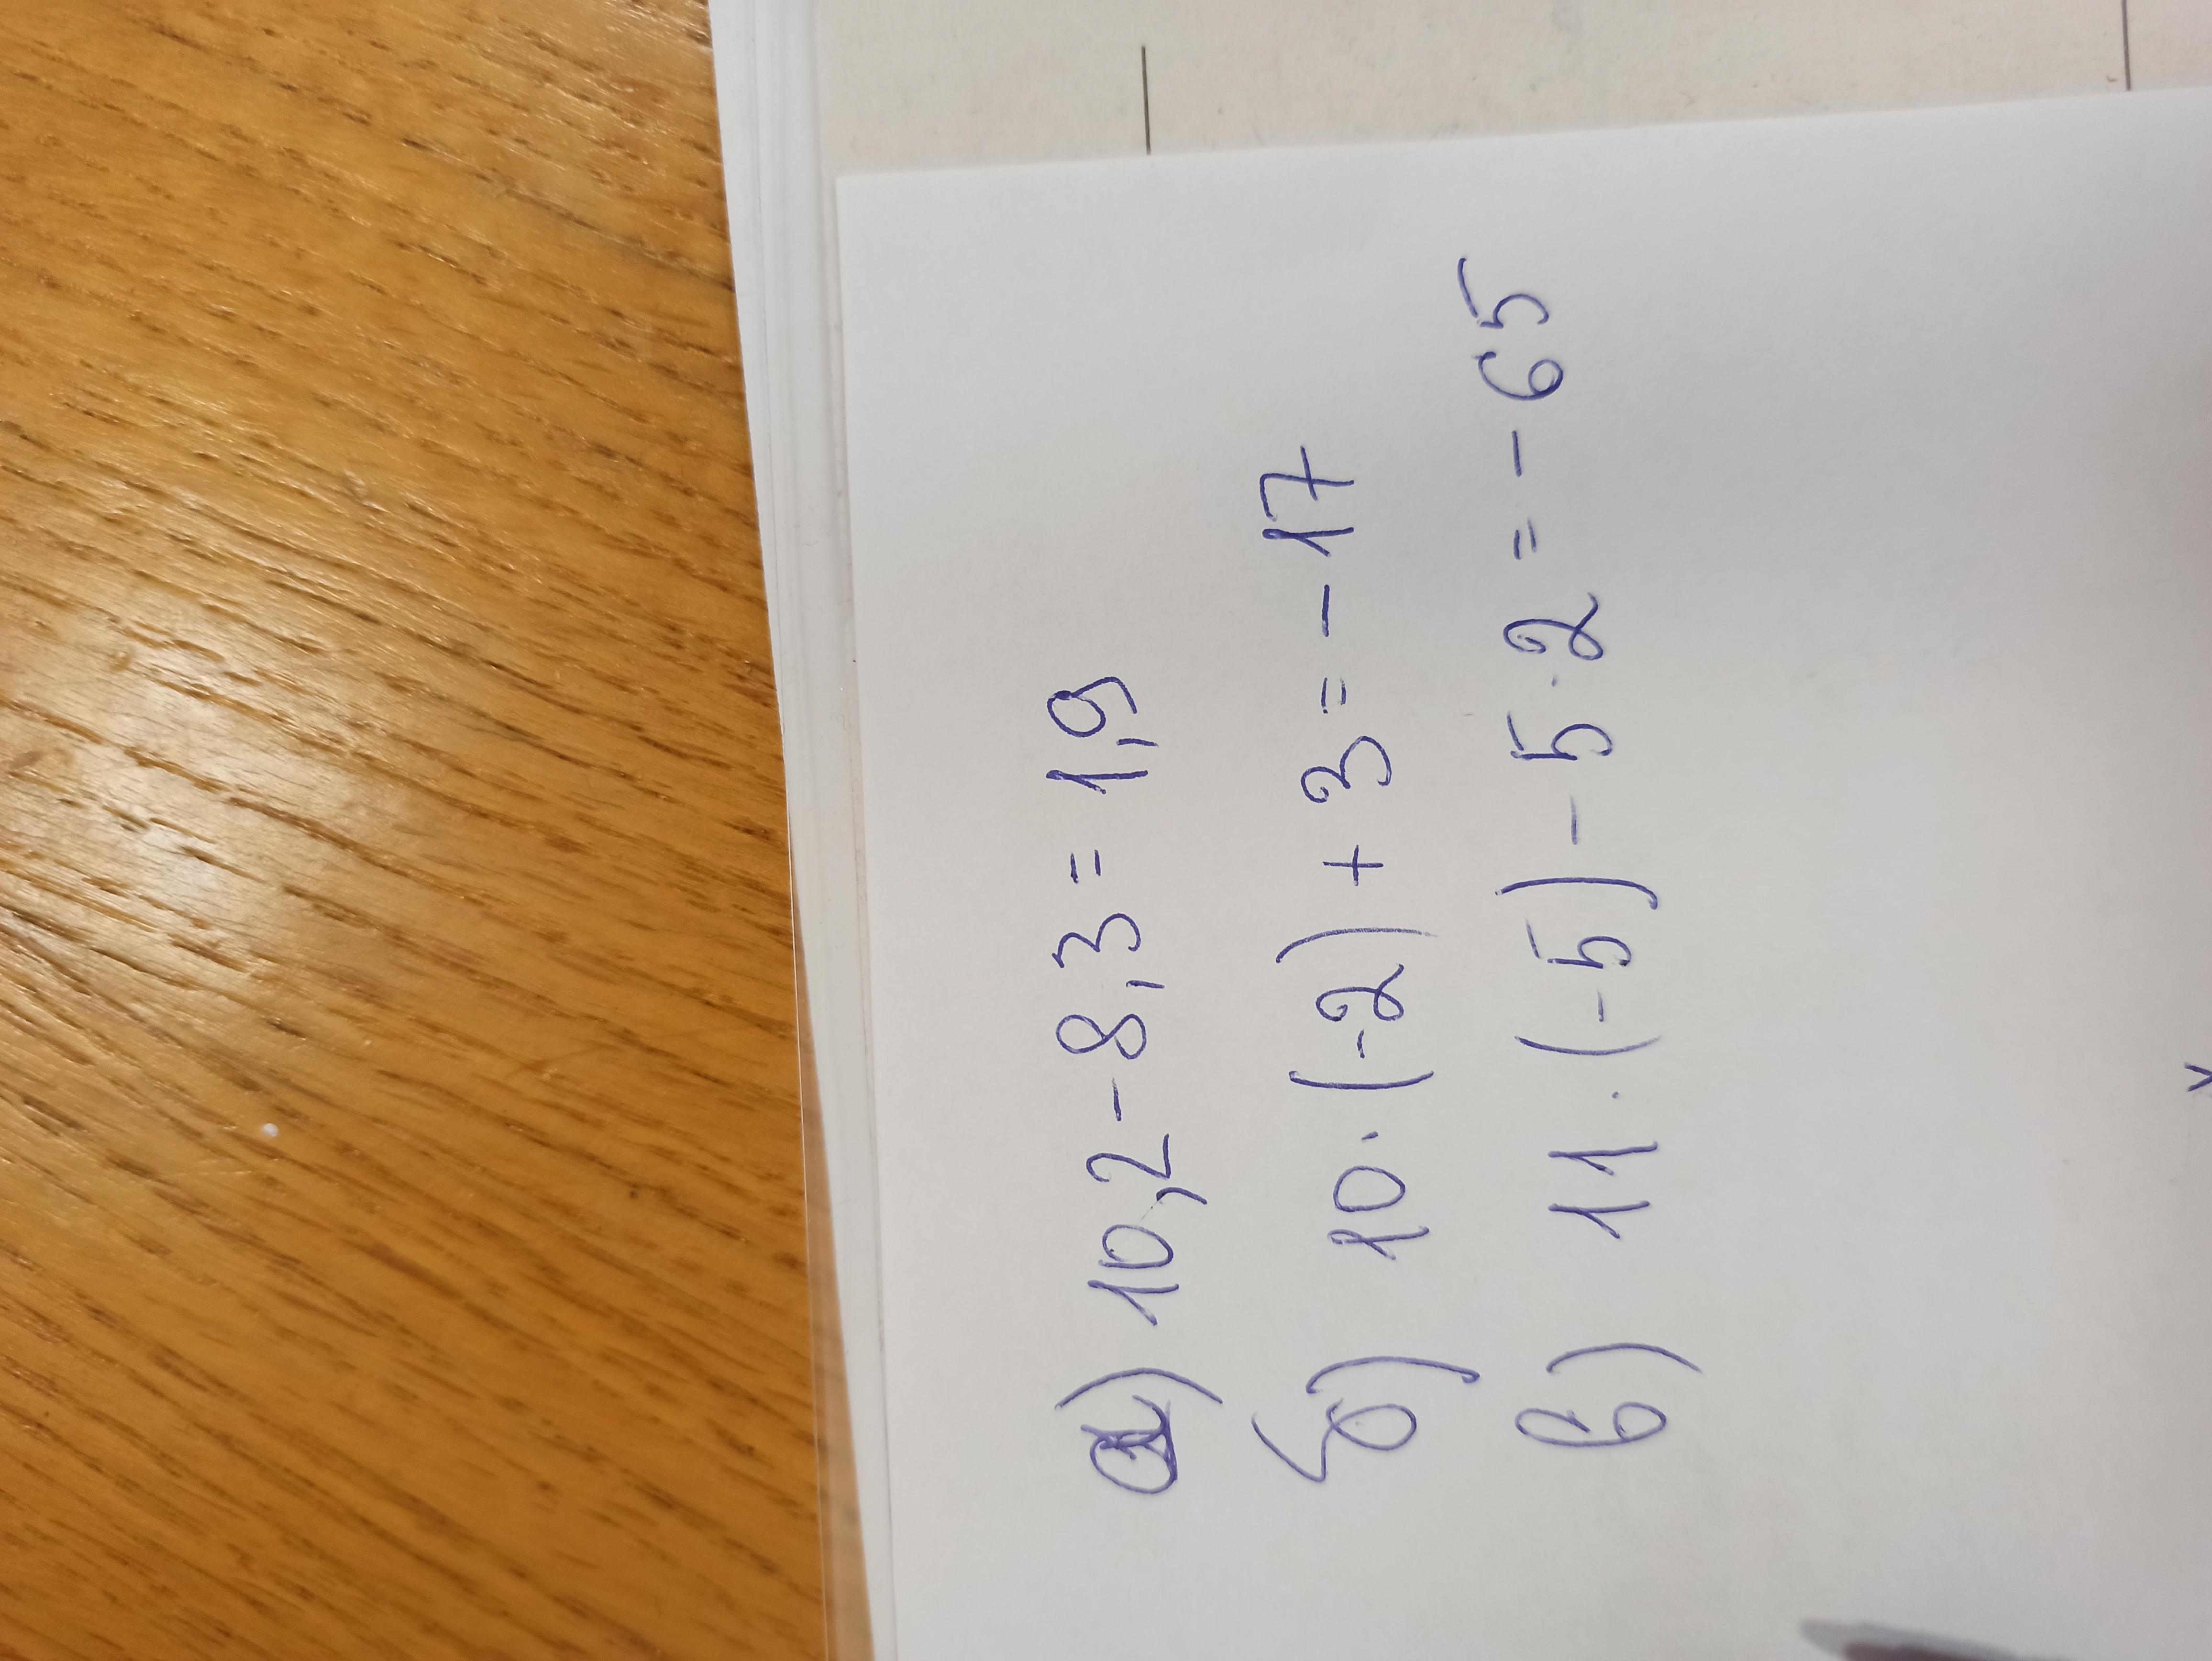 а) 10,2 - 8,3 = 1,9
б) 10 · (-2) + 3 = - 17
в) 11 · (-5) - 5 · 2 = - 65